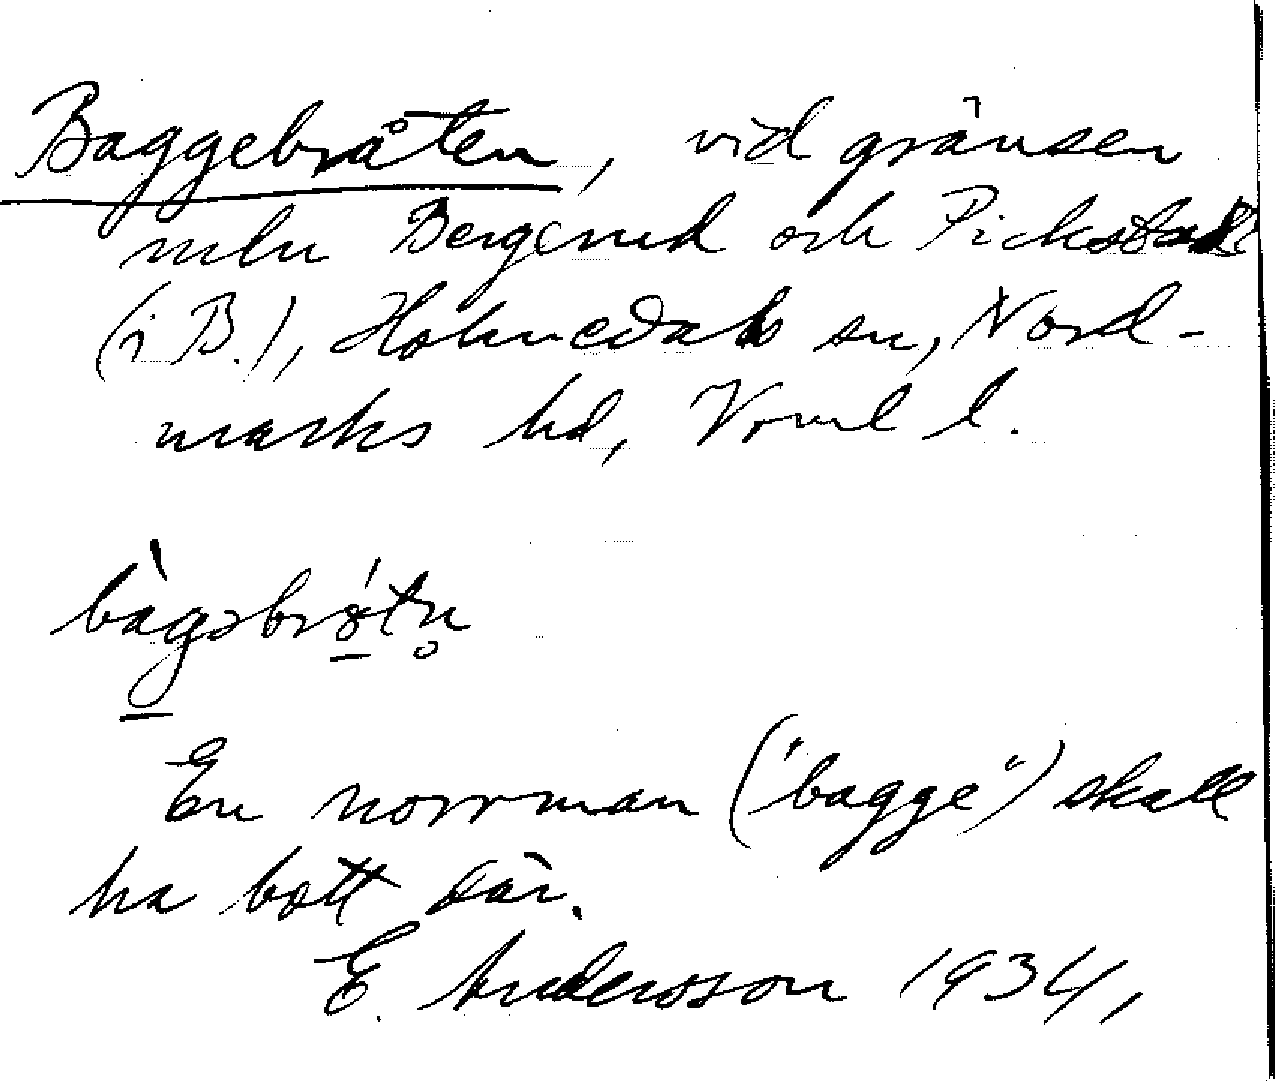 Baggebråten, vid gränsen
mln Bergerud och Rickstad
(i B.), Holmedals sn, Nord-
marks hd, Vrml l.
bàgəbrǿtn̥
En norrman ("bagge") skall
ha bott där.
E. Andersson 1934,